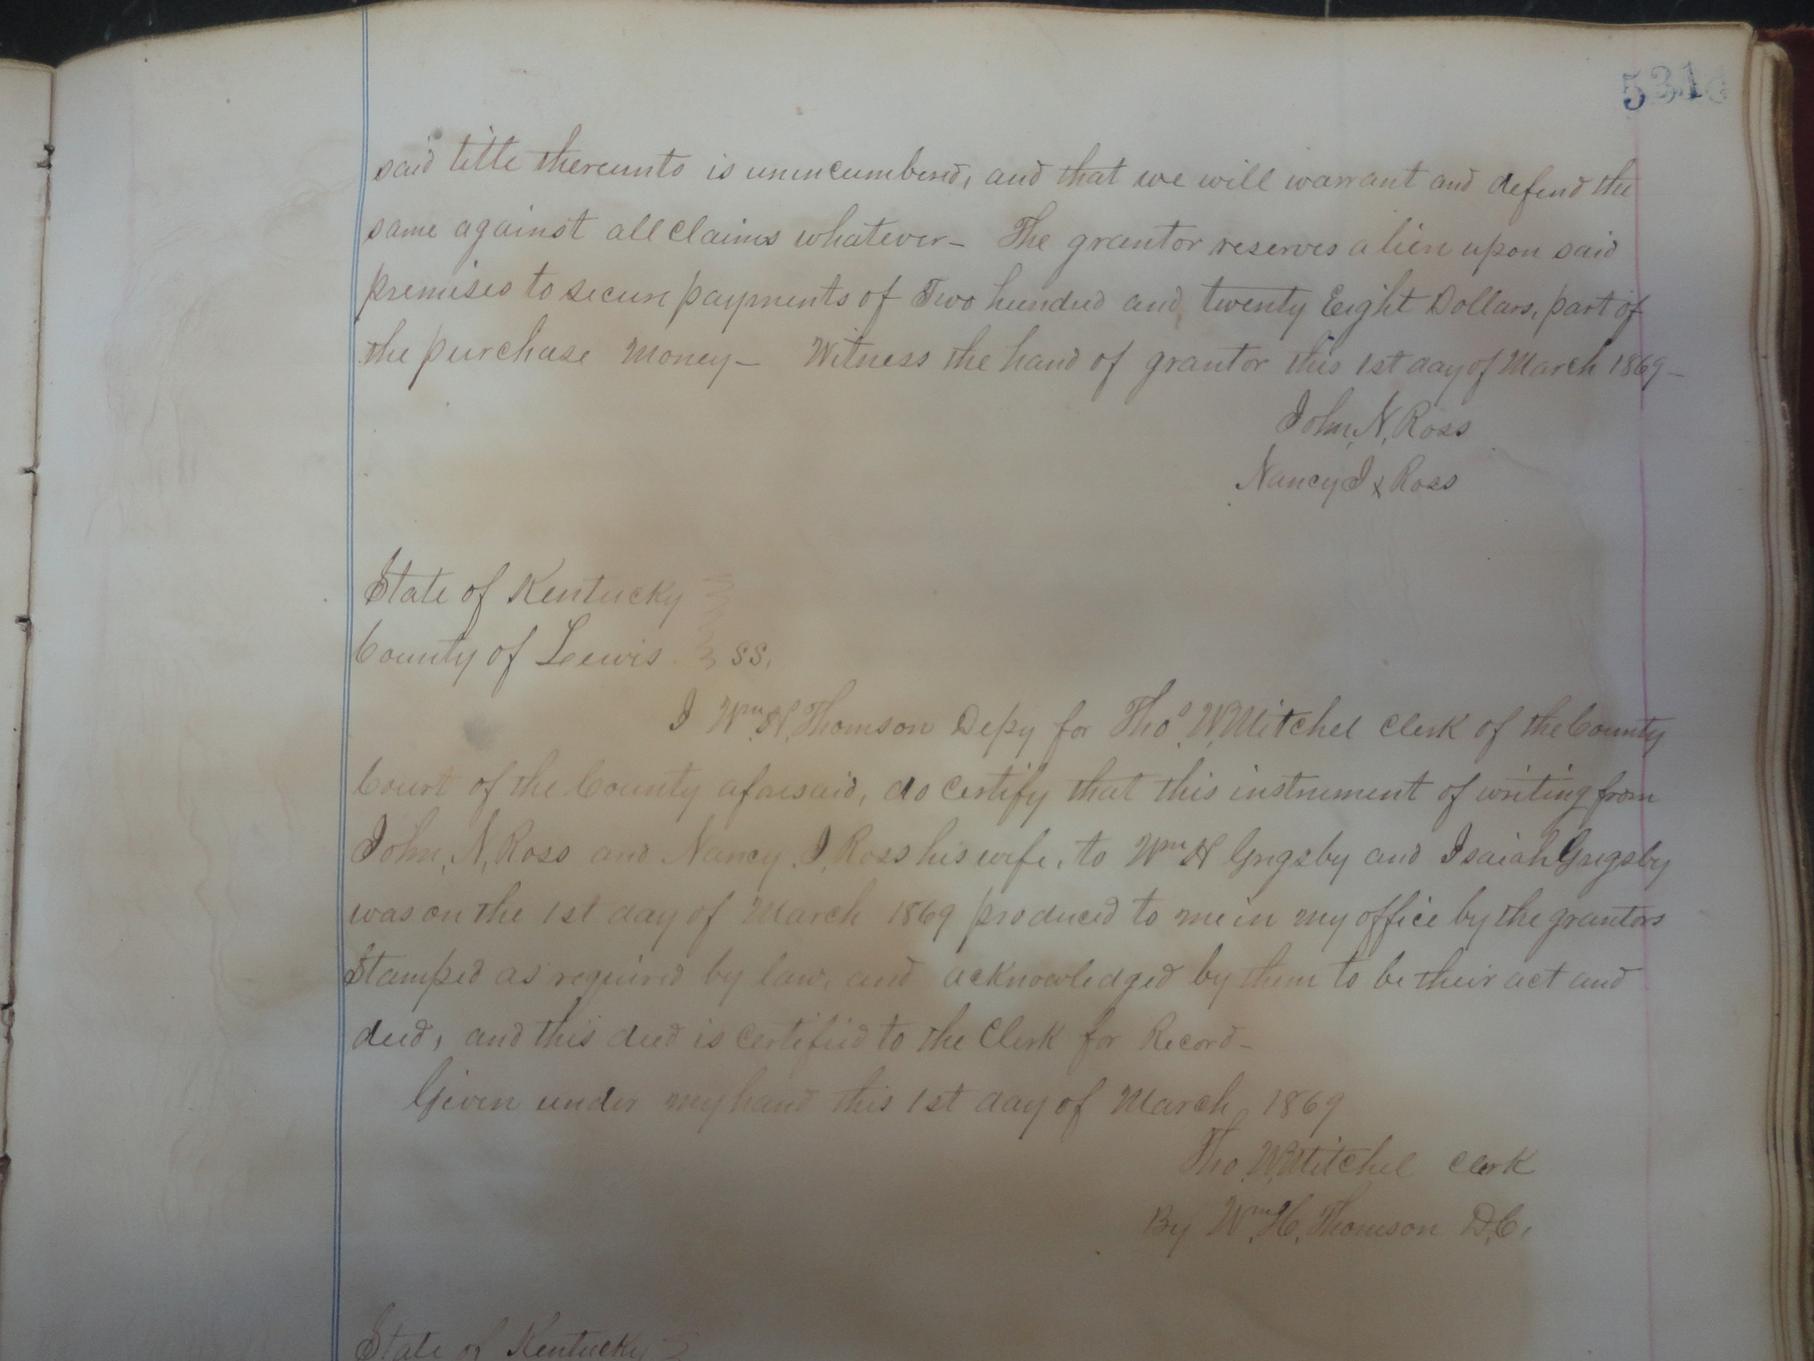 said title thereunto is unincumbered, and that we will warrant and defend the
same against all claims whatever – The grantor reserves a lien upon said
premises to secure payments of Two hundred and twenty Eight Dollars, part of
the purchase money – Witness the hand of grantor this 1st day of March 1869 –
John, N, Ross
Nancy J x Ross
State of Kentucky
County of Lewis ss,
I Wm H, Thomson Depy for Thos W, Mitchel Clerk of the County
Court of the County aforesaid, do certify that this instrument of writing from
John, N, Ross and Nancy J, Ross his wife, to Wm H Grigsby and Isaiah Grigsby
was on the 1st day of March 1869 produced to me in my office by the grantors
Stamped as required by law, and acknowledged by them to be their act and
deed, and this deed is certified to the Clerk for Record –
Given under my hand this 1st day of March 1869
Tho, W, Mitchel Clerk
By Wm, H, Thomson D,C,
State of Kentucky